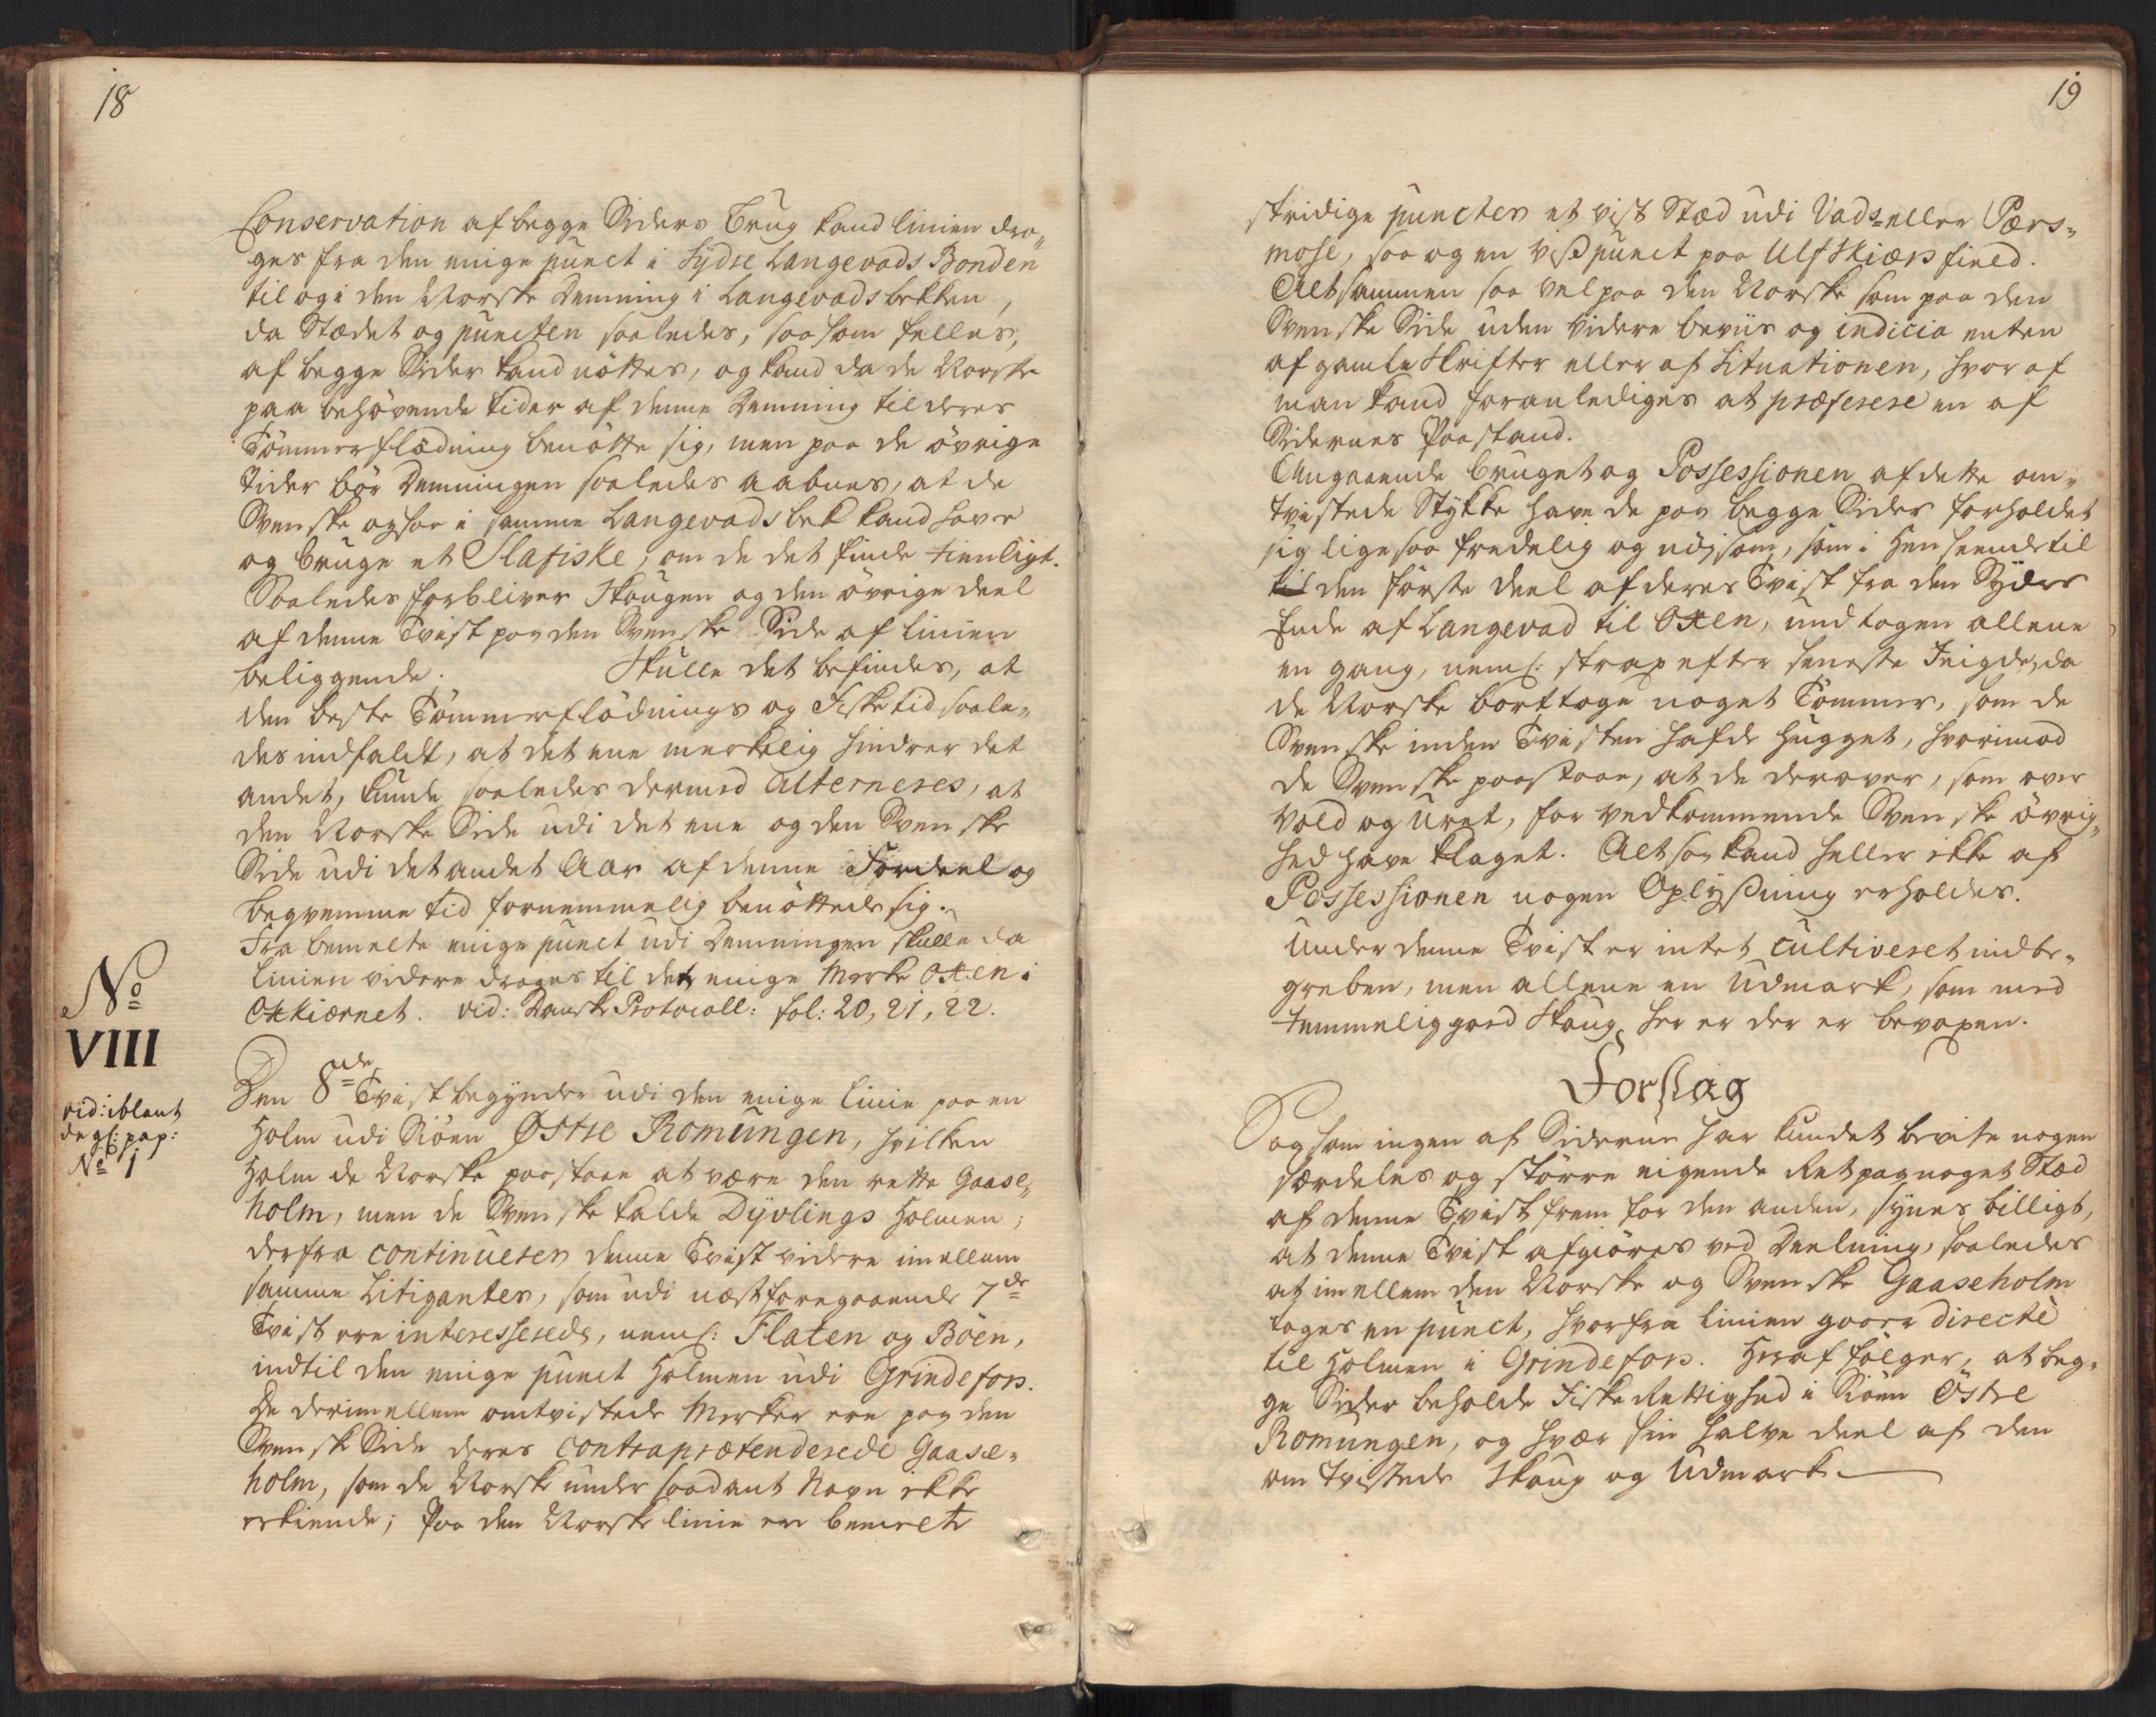 18
Conservation af begge Siders Brug kand linien dra„
ges fra den enige punct i Sydre Langevads Bonden
til og i den Norske Demning i Langevadsbekken,
da Stædet og puncten saaledes, saasom felles,
af begge Sider kand nötttes, og kand da de Norske
paa behövende tider af denne Demning til deres
Tömmerflödning benötte sig, men paa de övrige
tider bör Demningen saaledes aabnes, at de
Svenske ogsaa i samme Langevadsbek kand have
og bruge et Slafiske, om de det finde tienligt.
Saaledes forbliver Skougen og den övrige deel
af denne Tvist paa den Svenske Side af linien
beliggende. Skulle det befindes, at
den beste Tömmerflödnings og Fisketid saale„
des indfaldt, at det ene merkelig hindrer det
andet, kunde saaledes dermed alterneres, at
den Norske Side udi det ene og den Svenske
Side udi det andet Aar af denne Fordeel og
beqvemme tid fornemmelig benöttede sig.
Fra bemelte enige punct udi Demningen skulle da
linien videre drages til det enige Merke Oxen i
Oxkiærnet. vid: Danske Protocoll: fol: 20, 21, 22.
No
VIII
vid: iblant
de gl: pap:
No 1
Den 8de Tvist begynder udi den enige linie paa en
Holm udi Siöen Østre Romungen, hvilken
Holm de Norske paastaae at være den rette Gaase„
holm, men de Svenske kalde Dyvlings Holmen;
derfra continueres denne Tvist videre imellem
samme Litigantes, som udi næstforegaaende 7de
Tvist ere interesserede, neml: Flaten og Böen,
indtil den enige punct Holmen udi Grindefors.
De derimellem omtvistede Merker ere paa den
Svenske Side deres contraprætenderede Gaase„
holm, som de Norske under saadant Navn ikke
erkiende; Paa den Norske linie er bemelte
19
stridige puncter et vist Stæd udi Vads- eller Pærs„
mose, saa og en viss punct paa Ulfskiærsfield.
Altsammen saa vel paa den Norske som paa den
Svenske Side uden videre beviis og indicia enten
af gamle Skrifter eller af Situationen, hvoraf
man kand foranlediges at præferere en af
Sidernes Paastand.
Angaaende bruget og Possessionen af dette om„
tvistede Stykke have de paa begge Sider forholdet
sig ligesaa fredelig og nöjsom, som i Henseende til
til den störste deel af deres Tvist fra den Sydre
Ende af Langevad til Oxen, undtagen allene
en gang, neml: strax efter seneste Feigde, da
de Norske borttoge noget Tömmer, som de
Svenske inden Tvisten hafde hugget, hvorimod
de Svenske paastaae, at de derover, som over
vold og uret, for vedkommende Svenske övrig„
hed have klaget. Altsaa kand heller ikke af
Possessionen nogen Oplysning erholdes.
Under denne Tvist er intet cultiveret indbe„
greben, men allene en Udmark, som med
temmelig goed Skoug her og der er bevoxen.
Forslag
Saasom ingen af Siderne har kundet bevise nogen
særdeles og större eigende Ret paa noget Stæd
af denne Tvist frem for den anden, synes billigt,
at denne Tvist afgiöres ved Deelning, saaledes
at imellem den Norske og Svenske Gaaseholm
tages en punct, hvorfra linien gaaer directe
til Holmen i Grindefors. Heraf fölger, at beg„
ge Sider beholde Fiske Rettighed i Siöen Östre
Romungen, og hvær sin halve deel af den
omtvistede Skoug og Udmark.